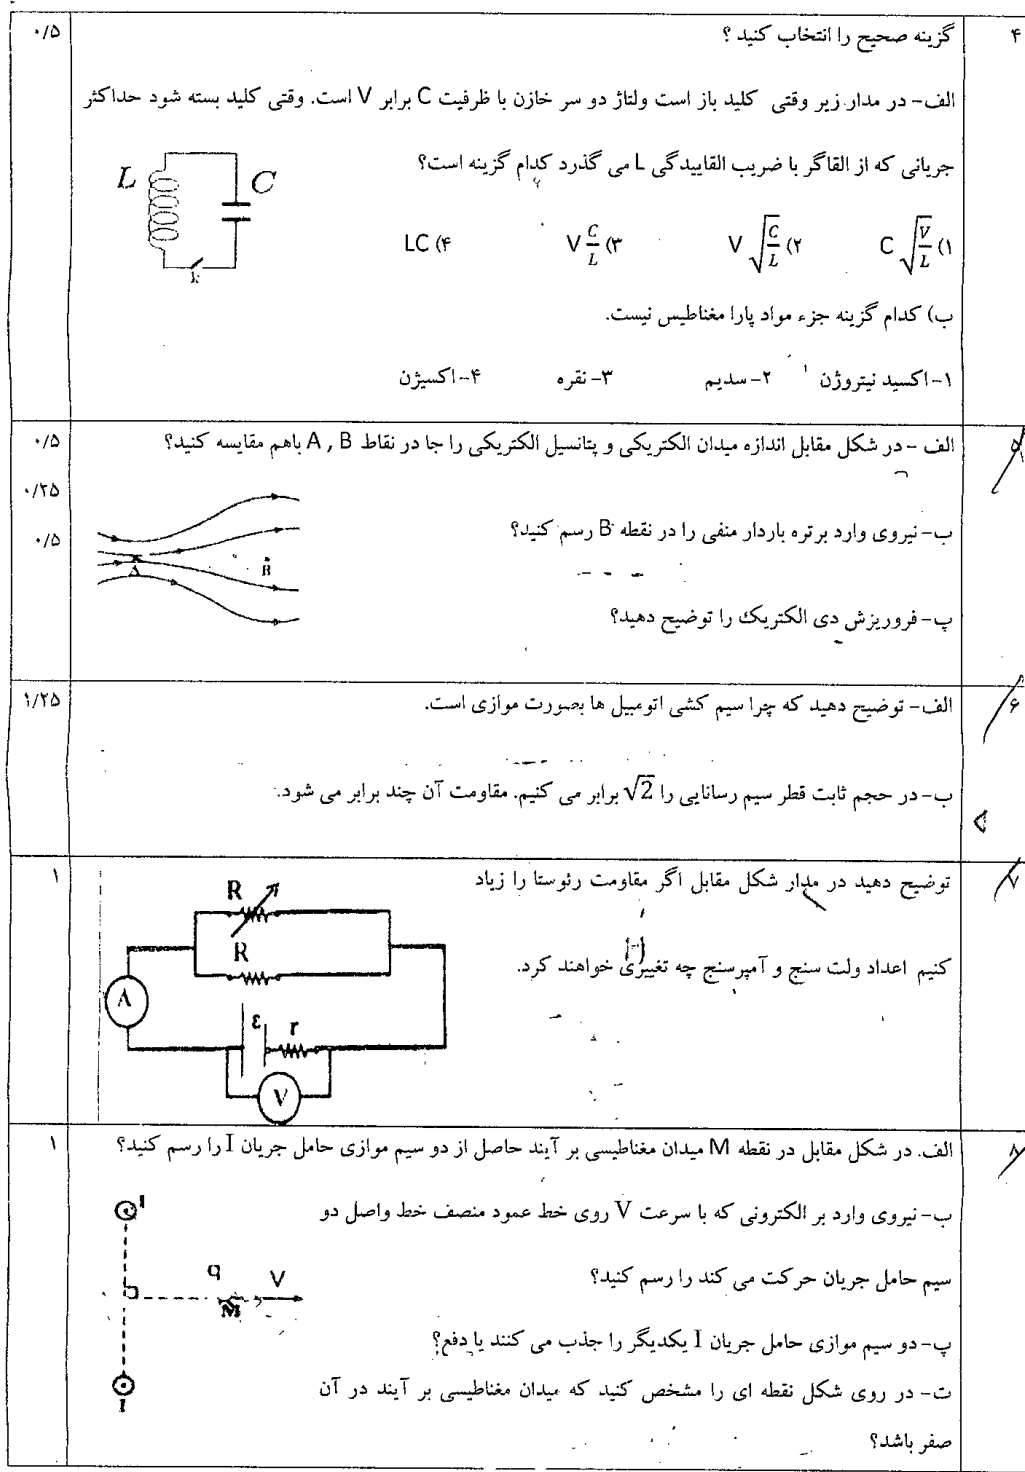 ۴
گزینه صحیح را انتخاب کنید ؟
۰/۵
الف- در مدار زیر وقتی کلید باز است ولتاژ دو سر خازن با ظرفیت C برابر V است. وقتی کلید بسته شود حداکثر
جریانی که از القاگر با ضریب القاییدگی L می گذرد کدام گزینه است؟
L C
k
۱) C√(V/L) ۲) V√(C/L) ۳) V C/L ۴) LC
ب) کدام گزینه جزء مواد پارا مغناطیس نیست.
۱-اکسید نیتروژن ۲-سدیم ۳-نقره ۴-اکسیژن
۵
الف - در شکل مقابل اندازه میدان الکتریکی و پتانسیل الکتریکی را جا در نقاط A , B باهم مقایسه کنید؟
۰/۵
۰/۲۵
ب- نیروی وارد برتره باردار منفی را در نقطه B رسم کنید؟
۰/۵
A B
پ- فروریزش دی الکتریک را توضیح دهید؟
۶
الف- توضیح دهید که چرا سیم کشی اتومبیل ها بصورت موازی است.
۱/۲۵
ب- در حجم ثابت قطر سیم رسانایی را √2 برابر می کنیم. مقاومت آن چند برابر می شود.
۷
توضیح دهید در مدار شکل مقابل اگر مقاومت رئوستا را زیاد
۱
کنیم اعداد ولت سنج و آمپرسنج چه تغییری خواهند کرد.
R
R
A
ε r
V
۸
الف. در شکل مقابل در نقطه M میدان مغناطیسی بر آیند حاصل از دو سیم موازی حامل جریان I را رسم کنید؟
۱
ب- نیروی وارد بر الکترونی که با سرعت V روی خط عمود منصف خط واصل دو
سیم حامل جریان حرکت می کند را رسم کنید؟
پ- دو سیم موازی حامل جریان I یکدیگر را جذب می کنند یا دفع؟
ت- در روی شکل نقطه ای را مشخص کنید که میدان مغناطیسی بر آیند در آن
صفر باشد؟
I
q V
M
I